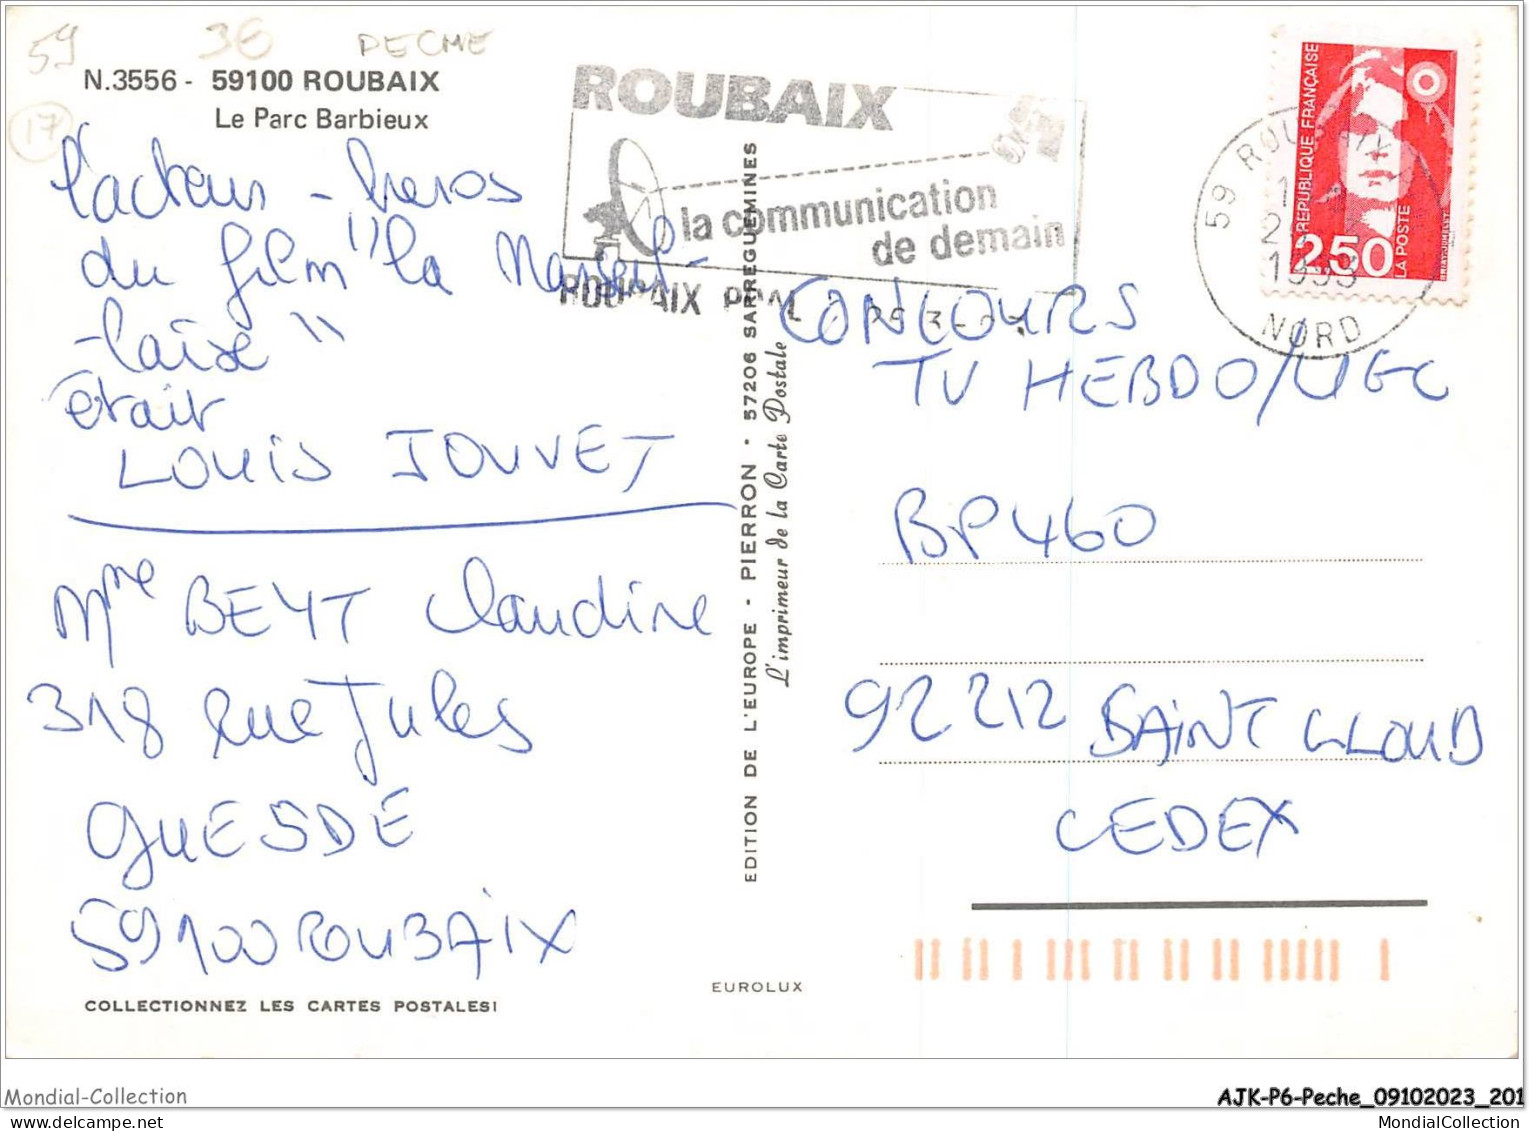 59
3€
PECHE
17
N.3556 - 59100 ROUBAIX
Le Parc Barbieux
l'acteur - heros
du film "la Marseil-
-laise"
était
LOUIS JOUVET
Mme BEYT Claudine
318 rue Jules
GUESDE
59100 ROUBAIX
COLLECTIONNEZ LES CARTES POSTALES!
EDITION DE L'EUROPE - PIERRON - 57206 SARREGUEMINES
L'imprimeur de la Carte Postale
EUROLUX
ROUBAIX
la communication
de demain
ROUBAIX
59 ROUBAIX
1993
NORD
REPUBLIQUE FRANÇAISE
2,50
LA POSTE
CONCOURS
TV HEBDO/UGC
BP 460
92212 SAINT CLOUD
CEDEX
Mondial-Collection
AJK-P6-Peche_09102023_201
MondialCollection